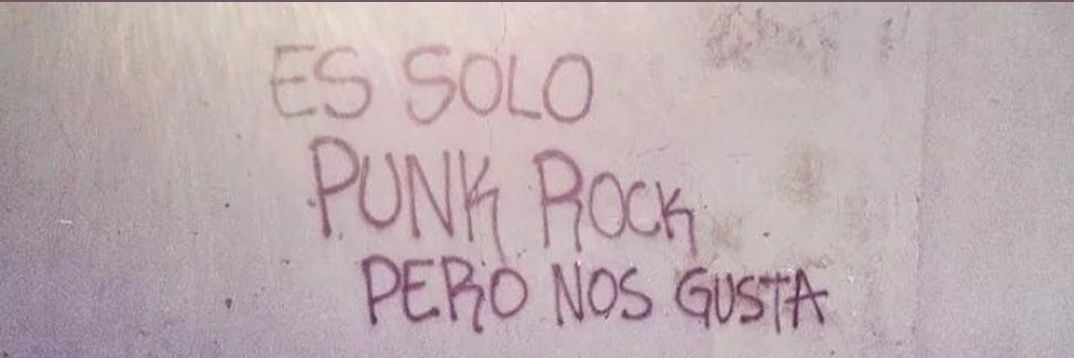 ES SOLO
PUNK ROCK
PERO NOS GUSTA